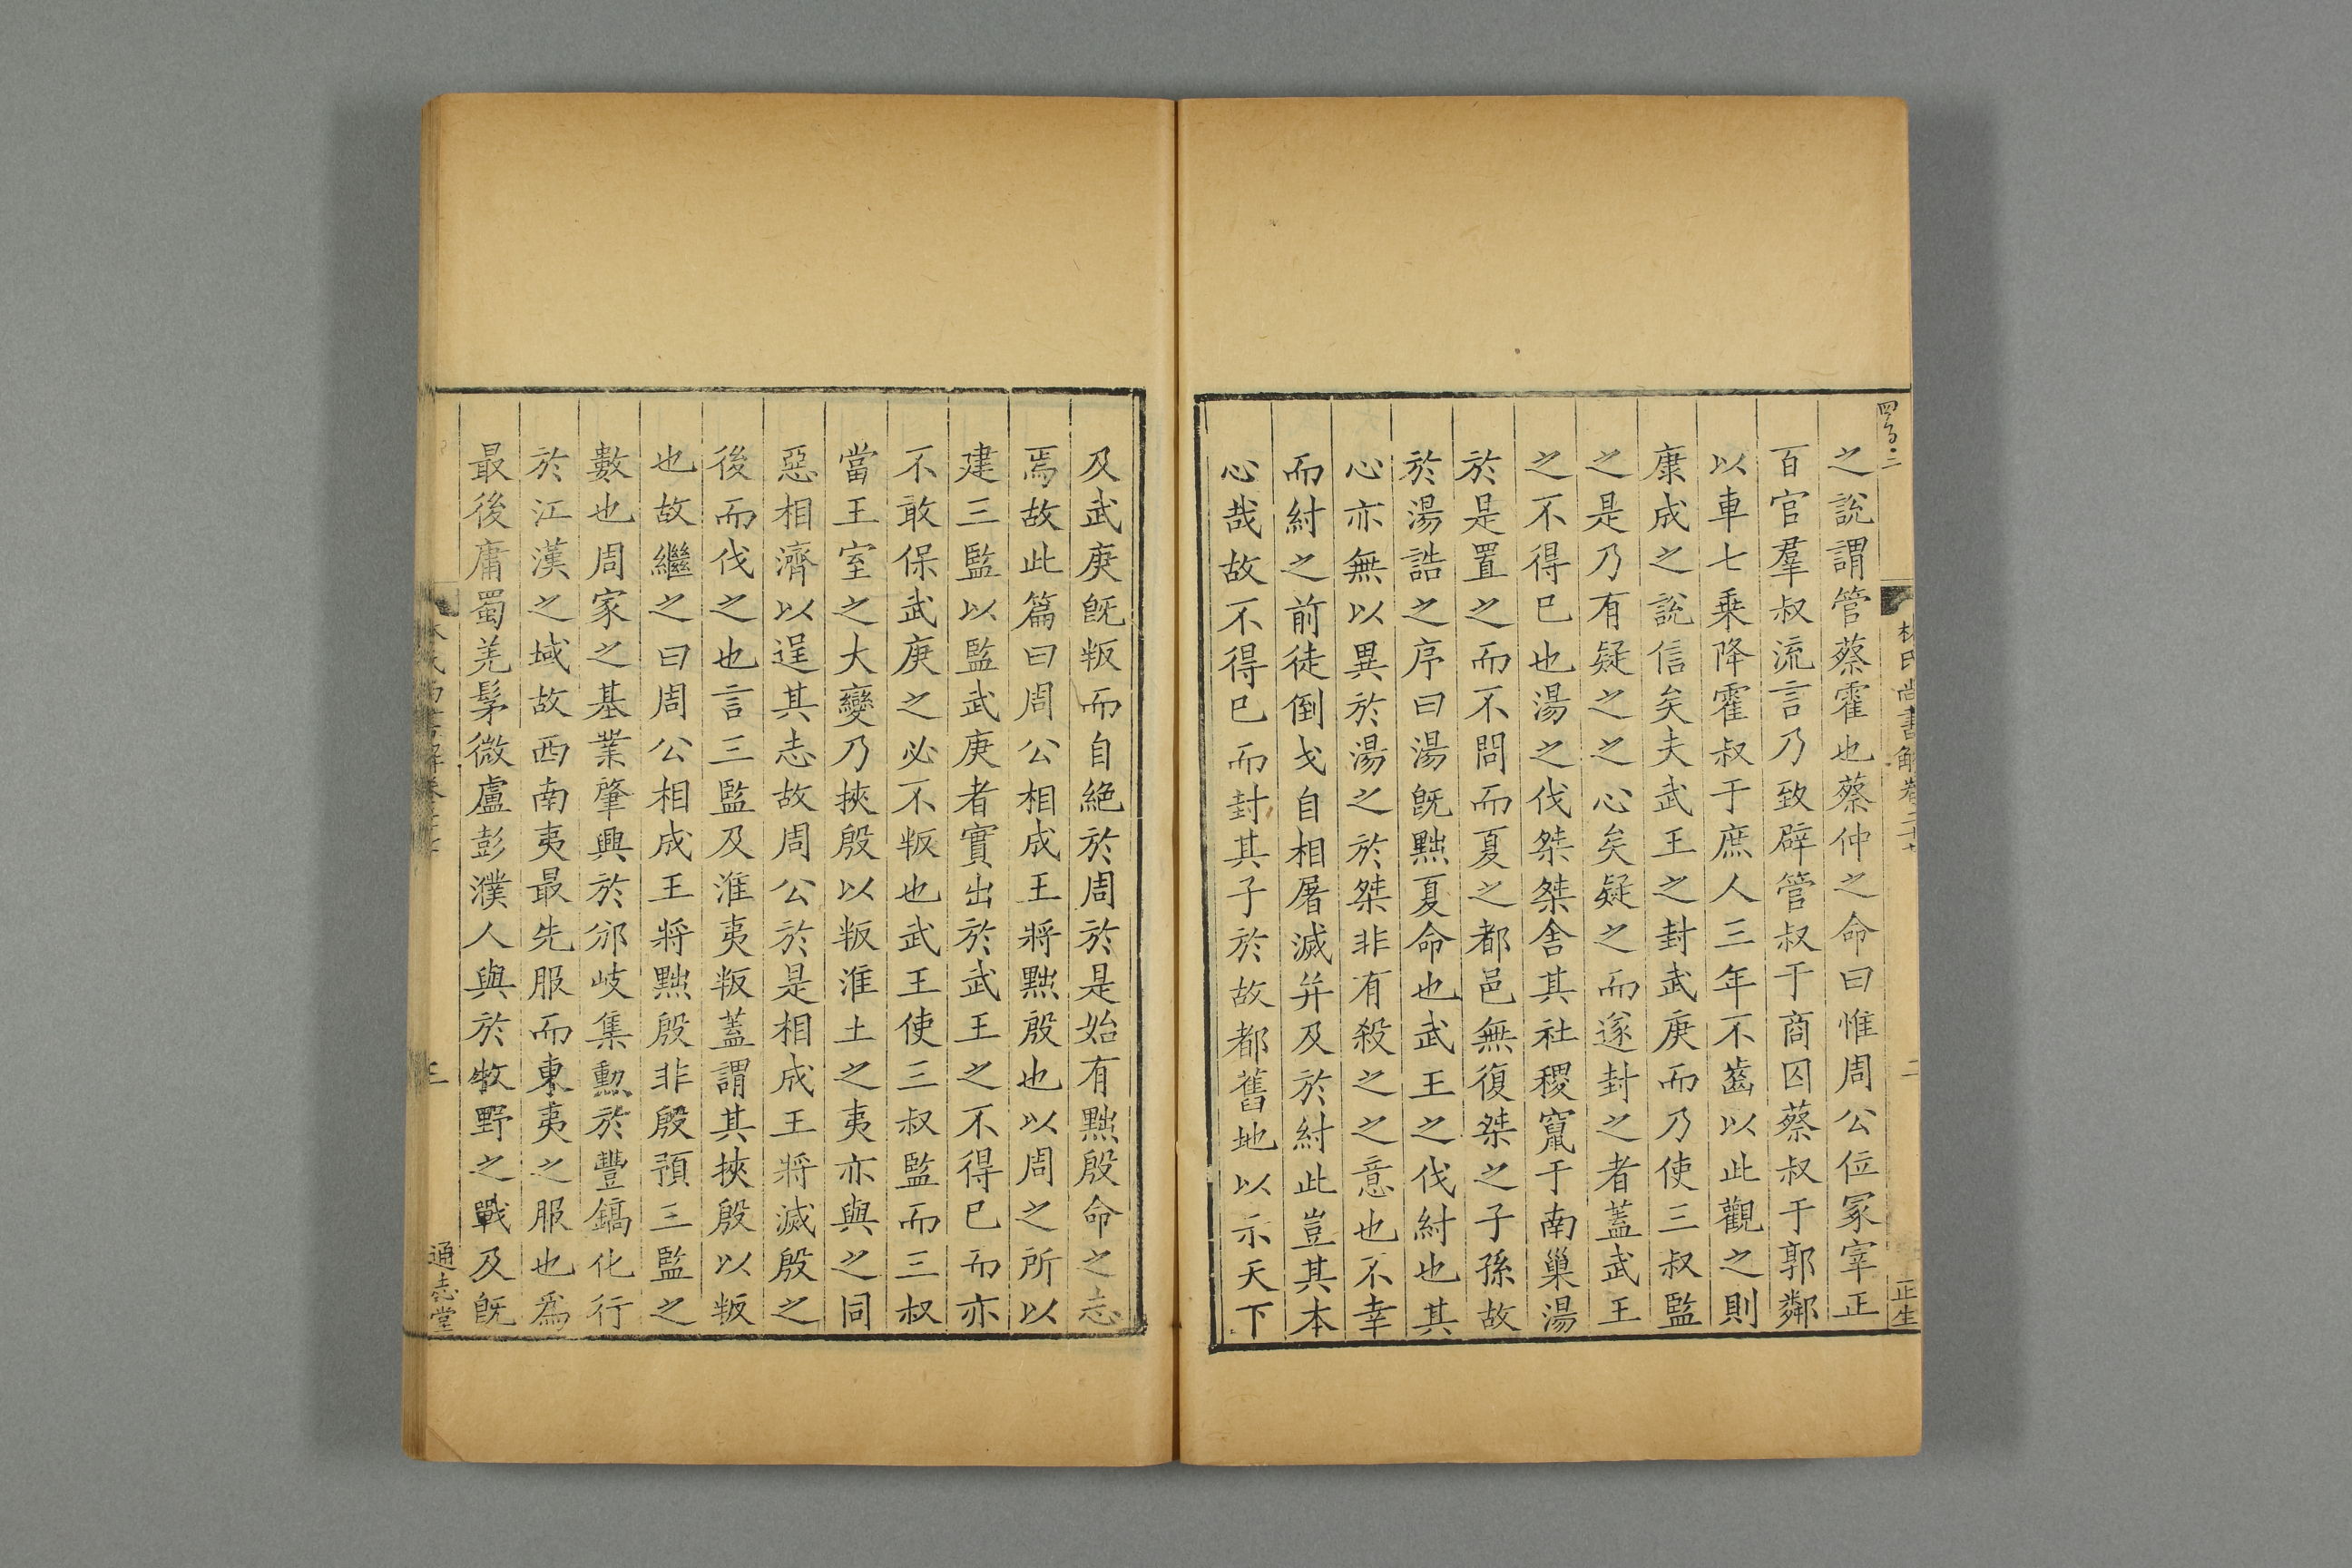 之說謂管蔡霍也蔡仲之命曰惟周公位冢宰正
百官羣叔流言乃致辟管叔于商囚蔡叔于郭鄰
以車七乘降霍叔于庶人三年不齒以此觀之則
康成之說信矣夫武王之封武庚而乃使三叔監
之是乃有疑之之心矣疑之而遂封之者蓋武王
之不得已也湯之伐桀桀舍其社稷竄于南巢湯
於是置之而不問而夏之都邑無復桀之子孫故
於湯誥之序曰湯旣黜夏命也武王之伐紂也其
心亦無以異於湯之於桀非有殺之之意也不幸
而紂之前徒倒戈自相屠滅并及於紂此豈其本
心哉故不得已而封其子於故都舊地以示天下
林氏尚書解卷二十
二
正生
及武庚旣叛而自絕於周於是始有黜殷命之志
焉故此篇曰周公相成王將黜殷也以周之所以
建三監以監武庚者實出於武王之不得已而亦
不敢保武庚之必不叛也武王使三叔監而三叔
當王室之大變乃挾殷以叛淮土之夷亦與之同
惡相濟以逞其志故周公於是相成王將滅殷之
後而伐之也言三監及淮夷叛蓋謂其挾殷以叛
也故繼之曰周公相成王將黜殷非殷預三監之
數也周家之基業肇興於邠岐集勲於豐鎬化行
於江漢之域故西南夷最先服而東夷之服也爲
最後庸蜀羌髳微盧彭濮人與於牧野之戰及旣
三
通志堂